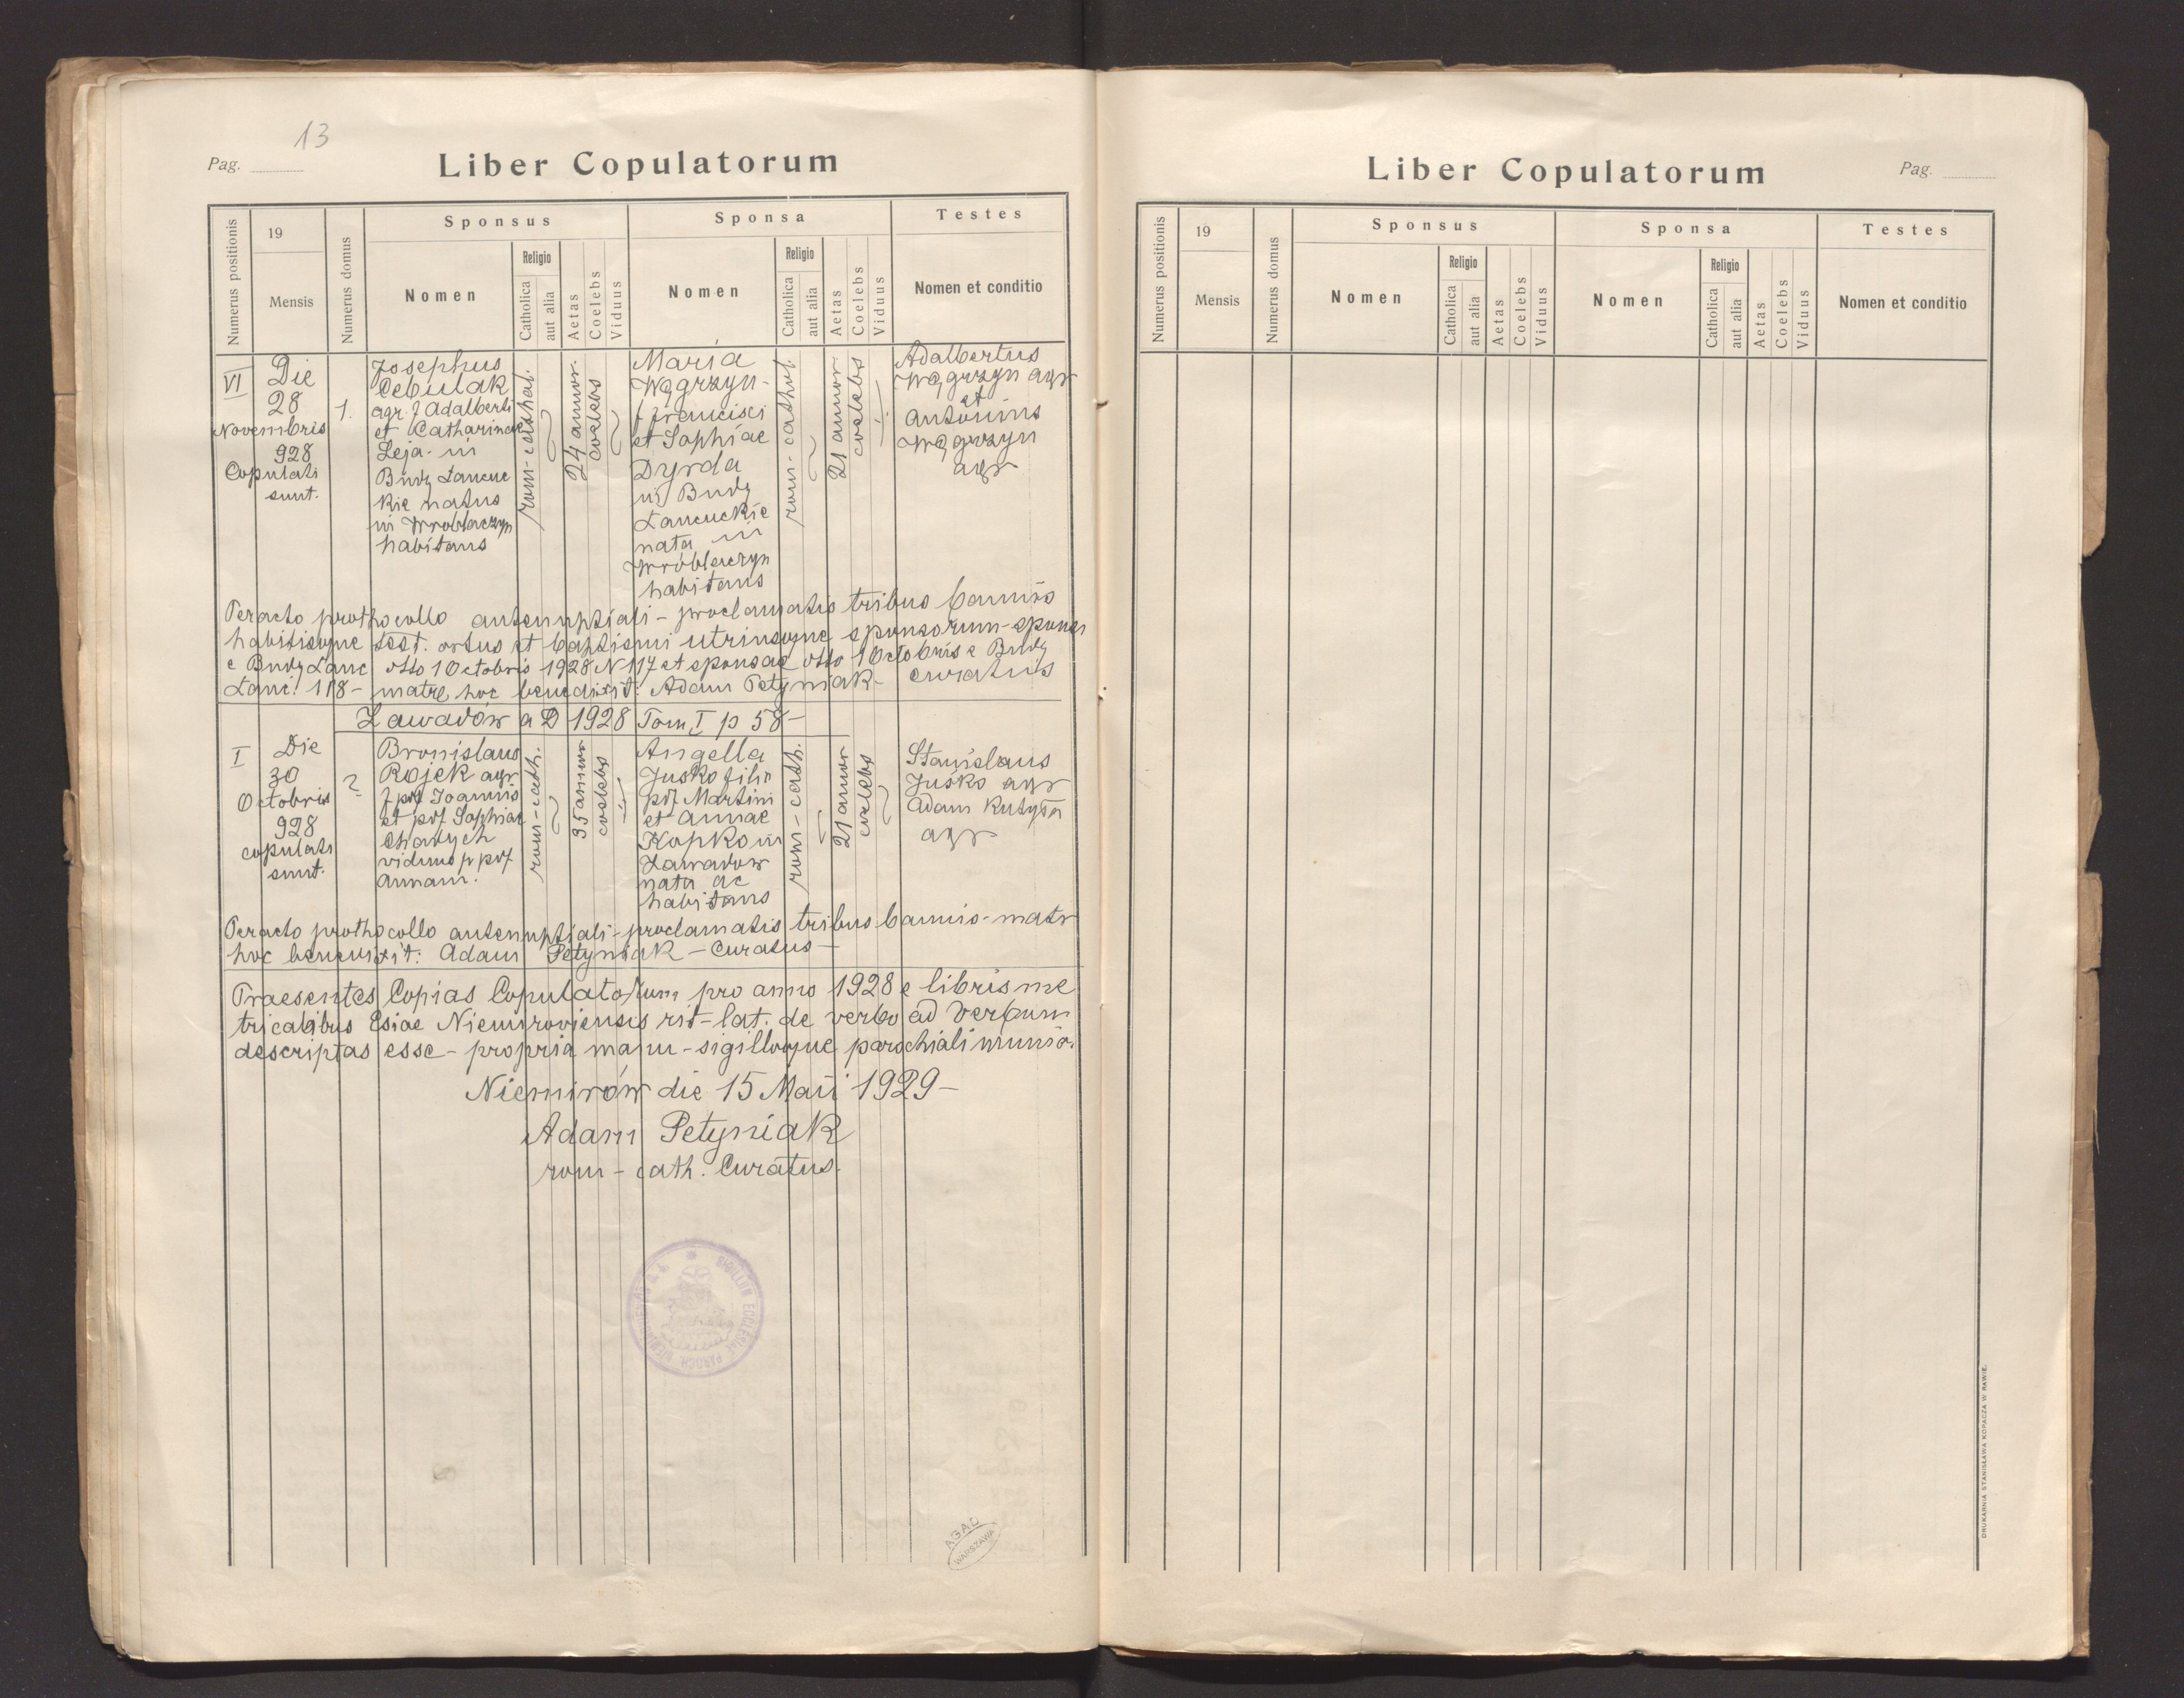 13
Pag.
Liber Copulatorum
Numerus positionis
19
Mensis
Numerus domus
Sponsus
Nomen
Religio
Catholica
aut alia
Aetas
Coelebs
Viduus
Sponsa
Nomen
Religio
Catholica
aut alia
Aetas
Coelebs
Viduus
Testes
Nomen et conditio
VI
Die
28
Novembris
928
Copulati
sunt.
1.
Josephus
Cebulak
agr. f Adalberti
et Catharinae
Leja - in
Budy Łańcuc
kie natus
in Wróblaczyn
habitans
rom-cathol.
24 annor.
coelebs
Maria
Wągrzyn-
f Francisci
et Sophiae
Dyrda
in Budy
Łańcuckie
nata in
Wróblaczyn
habitans
rom-cathol.
21 annor
coelebs
Adalbertus
Wągrzyn agr
et
Antonius
Wągrzyn
agr
Peracto prothocollo antenuptiali - proclamatis tribus bannis
habitisque test. ortus et baptismi utriusque sponsorum - sponsi
e Budy Łanc dtto 1 Octobris 1928 N 117 et sponsae dtto 1 Octobris e Budy
Łanc. 118 - matre hoc benedixit: Adam Petyniak - curatus
Zawadów a D 1928 Tom I p 58 -
I
Die
30
Octobris
928
copulati
sunt.
?
Bronislaus
Rojek agr
f pdf Joannis
et pdf Sophiae
Charych
viduus p pdf
Annam.
rom-cath.
35 annor
coelebs
Angella
Juśko filia
pdf Martini
et Annae
Kopko in
Zawadów
nata ac
habitans
rom-cath.
21 annor
coelebs
Stanislaus
Juśko agr
Adam Kutyła
agr
Peracto prothocollo antenuptiali - proclamatis tribus bannis - matr
hoc benedixit: Adam Petyniak - Curatus -
Praesentes Copias Copulatorum pro anno 1928 e libris me
tricalibus Esiae Niemiroviensis rit-lat. de verbo ad verbum
descriptas esse - propria manu - sigilloque parochiali munio.
Niemirów die 15 Maii 1929 -
Adam Petyniak
rom-cath. Curatus.
SIGILLUM ECCLESIAE PAROCH.
AGAD
WARSZAWA
Liber Copulatorum
Pag.
Numerus positionis
19
Mensis
Numerus domus
Sponsus
Nomen
Religio
Catholica
aut alia
Aetas
Coelebs
Viduus
Sponsa
Nomen
Religio
Catholica
aut alia
Aetas
Coelebs
Viduus
Testes
Nomen et conditio
DRUKARNIA STANISŁAWA KOPACZA W RAWIE.